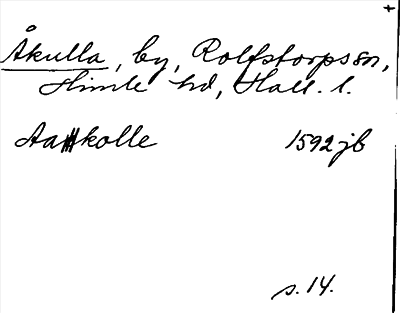 Åkulla, by, Rolfstorps sn,
Himle hd, Hall. l.
Aakolle 1592 jb
s. 14.